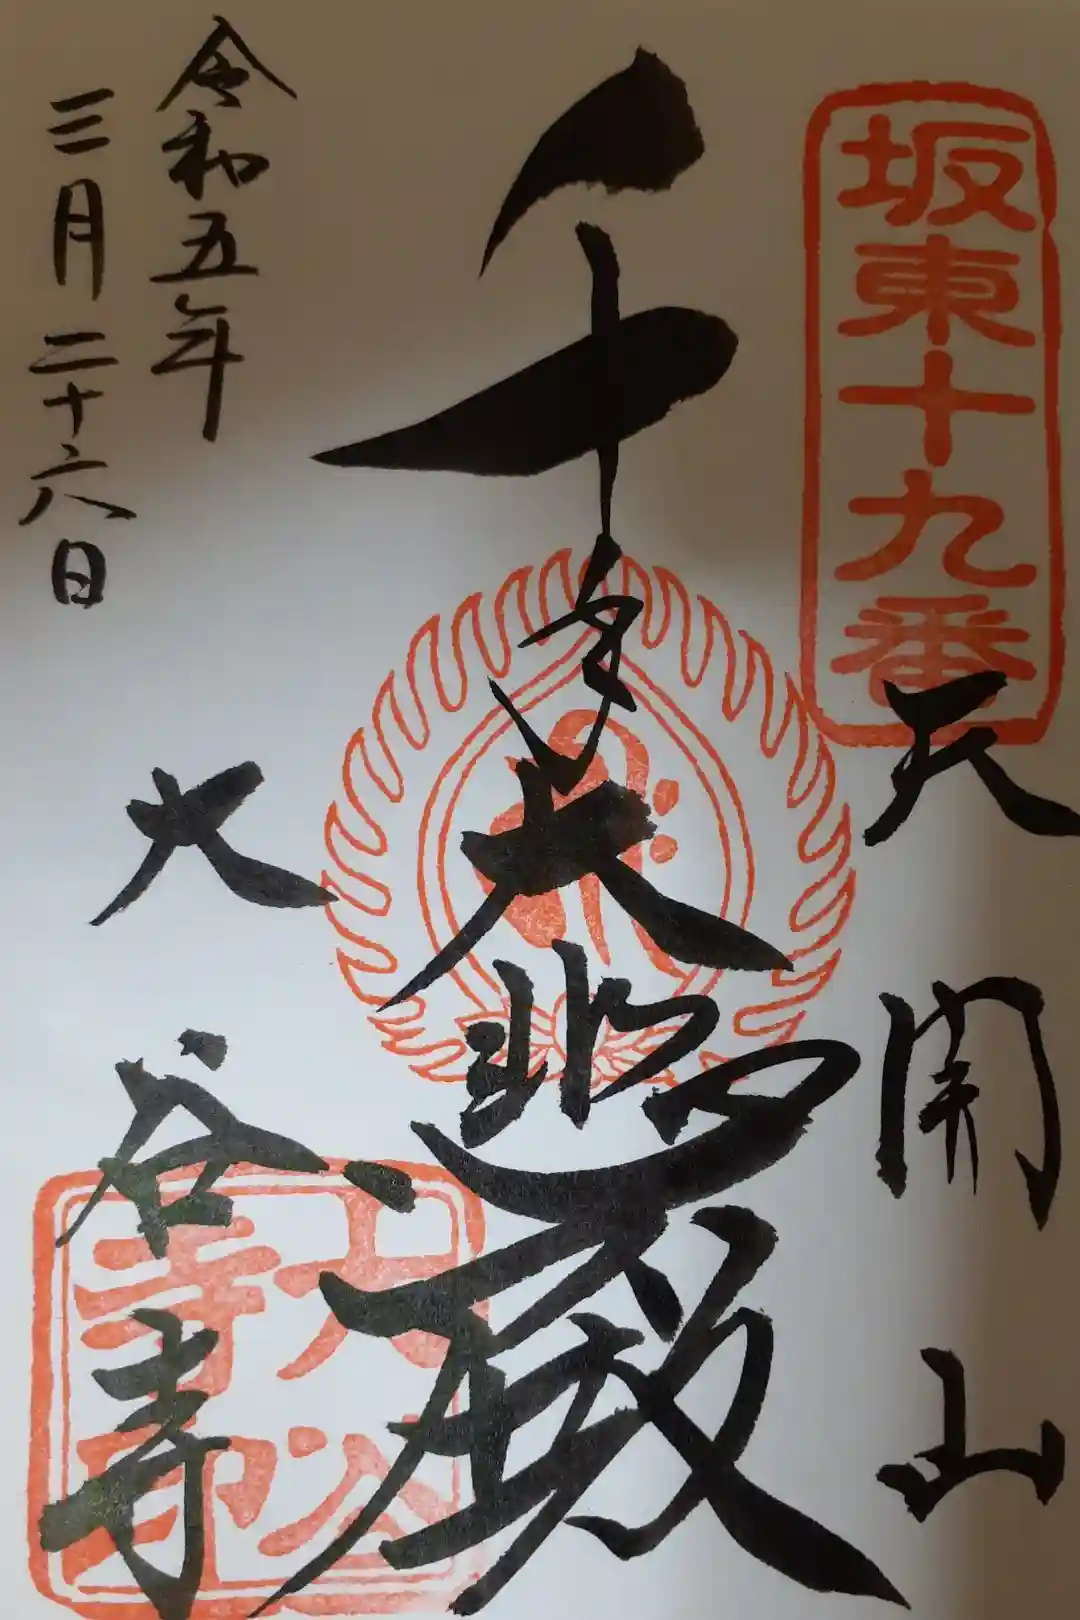 坂東十九番
天開山
千手大悲殿
大谷寺
大谷寺印
令和五年
三月二十六日